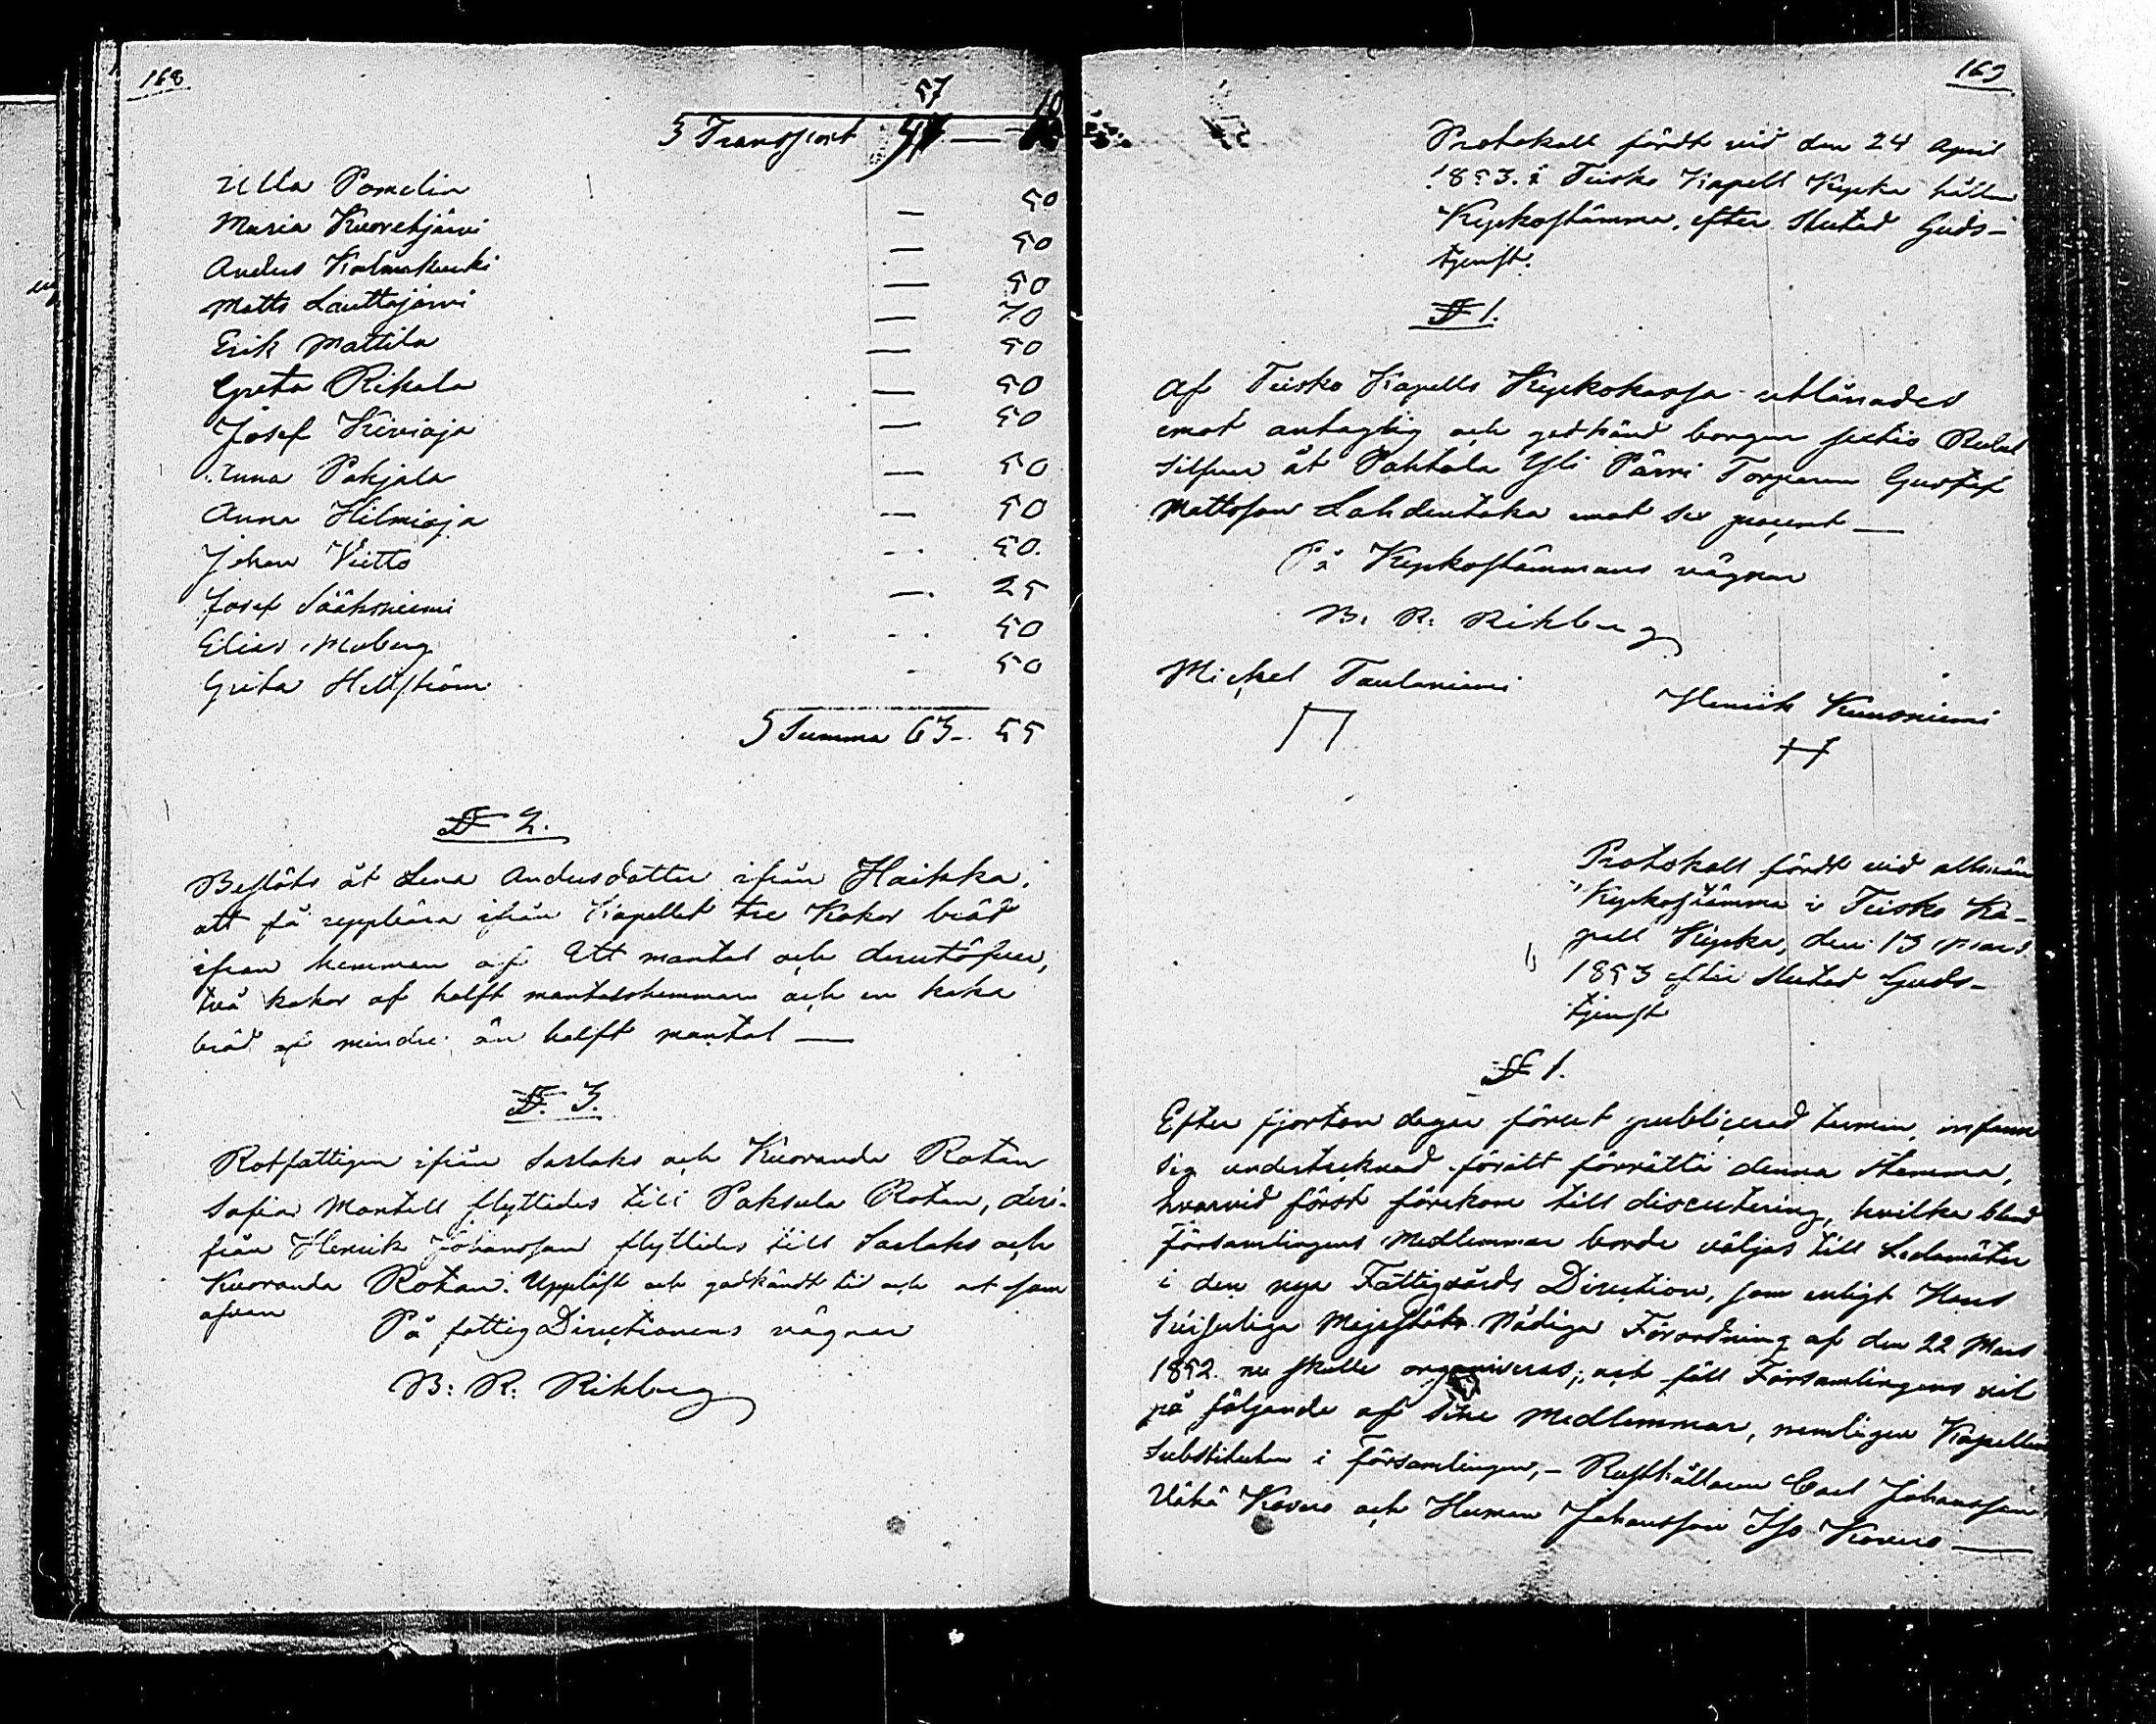 168
57 10
Transport 47 —
Ulla Pomelin — 50
Maria Kuorehjärvi — 50
Anders Kalmakurki — 50
Matts Lauttajärvi — 70
Erik Mattila — 50
Greta Rikala — 50
Josef Kiviaja — 50
Anna Pohjala — 50
Anna Hilmiaja — 50
Johan Vietto — 50.
Josef Sääksniemi — 25
Elias Moberg — 50
Greta Hellström - 50
Summa 63 - 55
§ 2.
Beslöts åt Lena Andersdotter ifrån Haikka,
att få uppbära ifrån Kapellet tre Kakor bröd
ifrån hemman af Ett mantal och derutöfver,
två kakor af halft mantalshemman och en kaka
bröd af mindre än halft mantal —
§. 3.
Rotfattigen ifrån Sarlaks och Kuoranda Rotan
Sofia Mantell flyttides till Paksula Rotan, deri-
från Henrik Johansson flyttides till Sarlaks och
Kuoranda Rotan. Uppläst och godkändt tid och ort som
ofvan
På fattig Directionens vägnar
B: R: Rikberg
169
Protokoll fördt vid den 24 April
1853. i Teisko Kapell Kyrka hållen
Kyrkostämma, efter slutad Guds-
tjenst.
§ 1.
Af Teisko Kapells Kyrkokassa utlånades
emot antaglig och godkänd borgen sextio Rubel
Silfver åt Pohtola Yli Pärri Torparen Gustaf
Mattsson Lahdentaka emot sex procent —
På Kyrkostämmans vägnar
B: R: Rikberg
Michel Taulaniemi
Henrik Kuusniemi
Protokoll fördt vid allmän
Kyrkostämma i Teisko Ka-
pell Kyrka, den 13 Mars
1853 efter slutad Guds-
tjenst
§ 1.
Efter fjorton dagar förut publicerad termin, infann
sig undertecknad förätt förrätta denna stämma,
hvarvid först förekom till discutering, hvilka bland
Församlingens Medlemmar borde väljas till Ledamöter
i den nya Fattigvårds Direction, som enligt Hans
Kejserliga Majestäts Nådiga Förordning af den 22 Mars
1852. nu skulle organiseras; och föll Församlingens val
på följande af sina Medlemmar, nemligen Kapellans
Substituten i Församlingen, - Rusthållaren Carl Johansson
Vähä Kovero och Herman Johansson Iso Kovero —